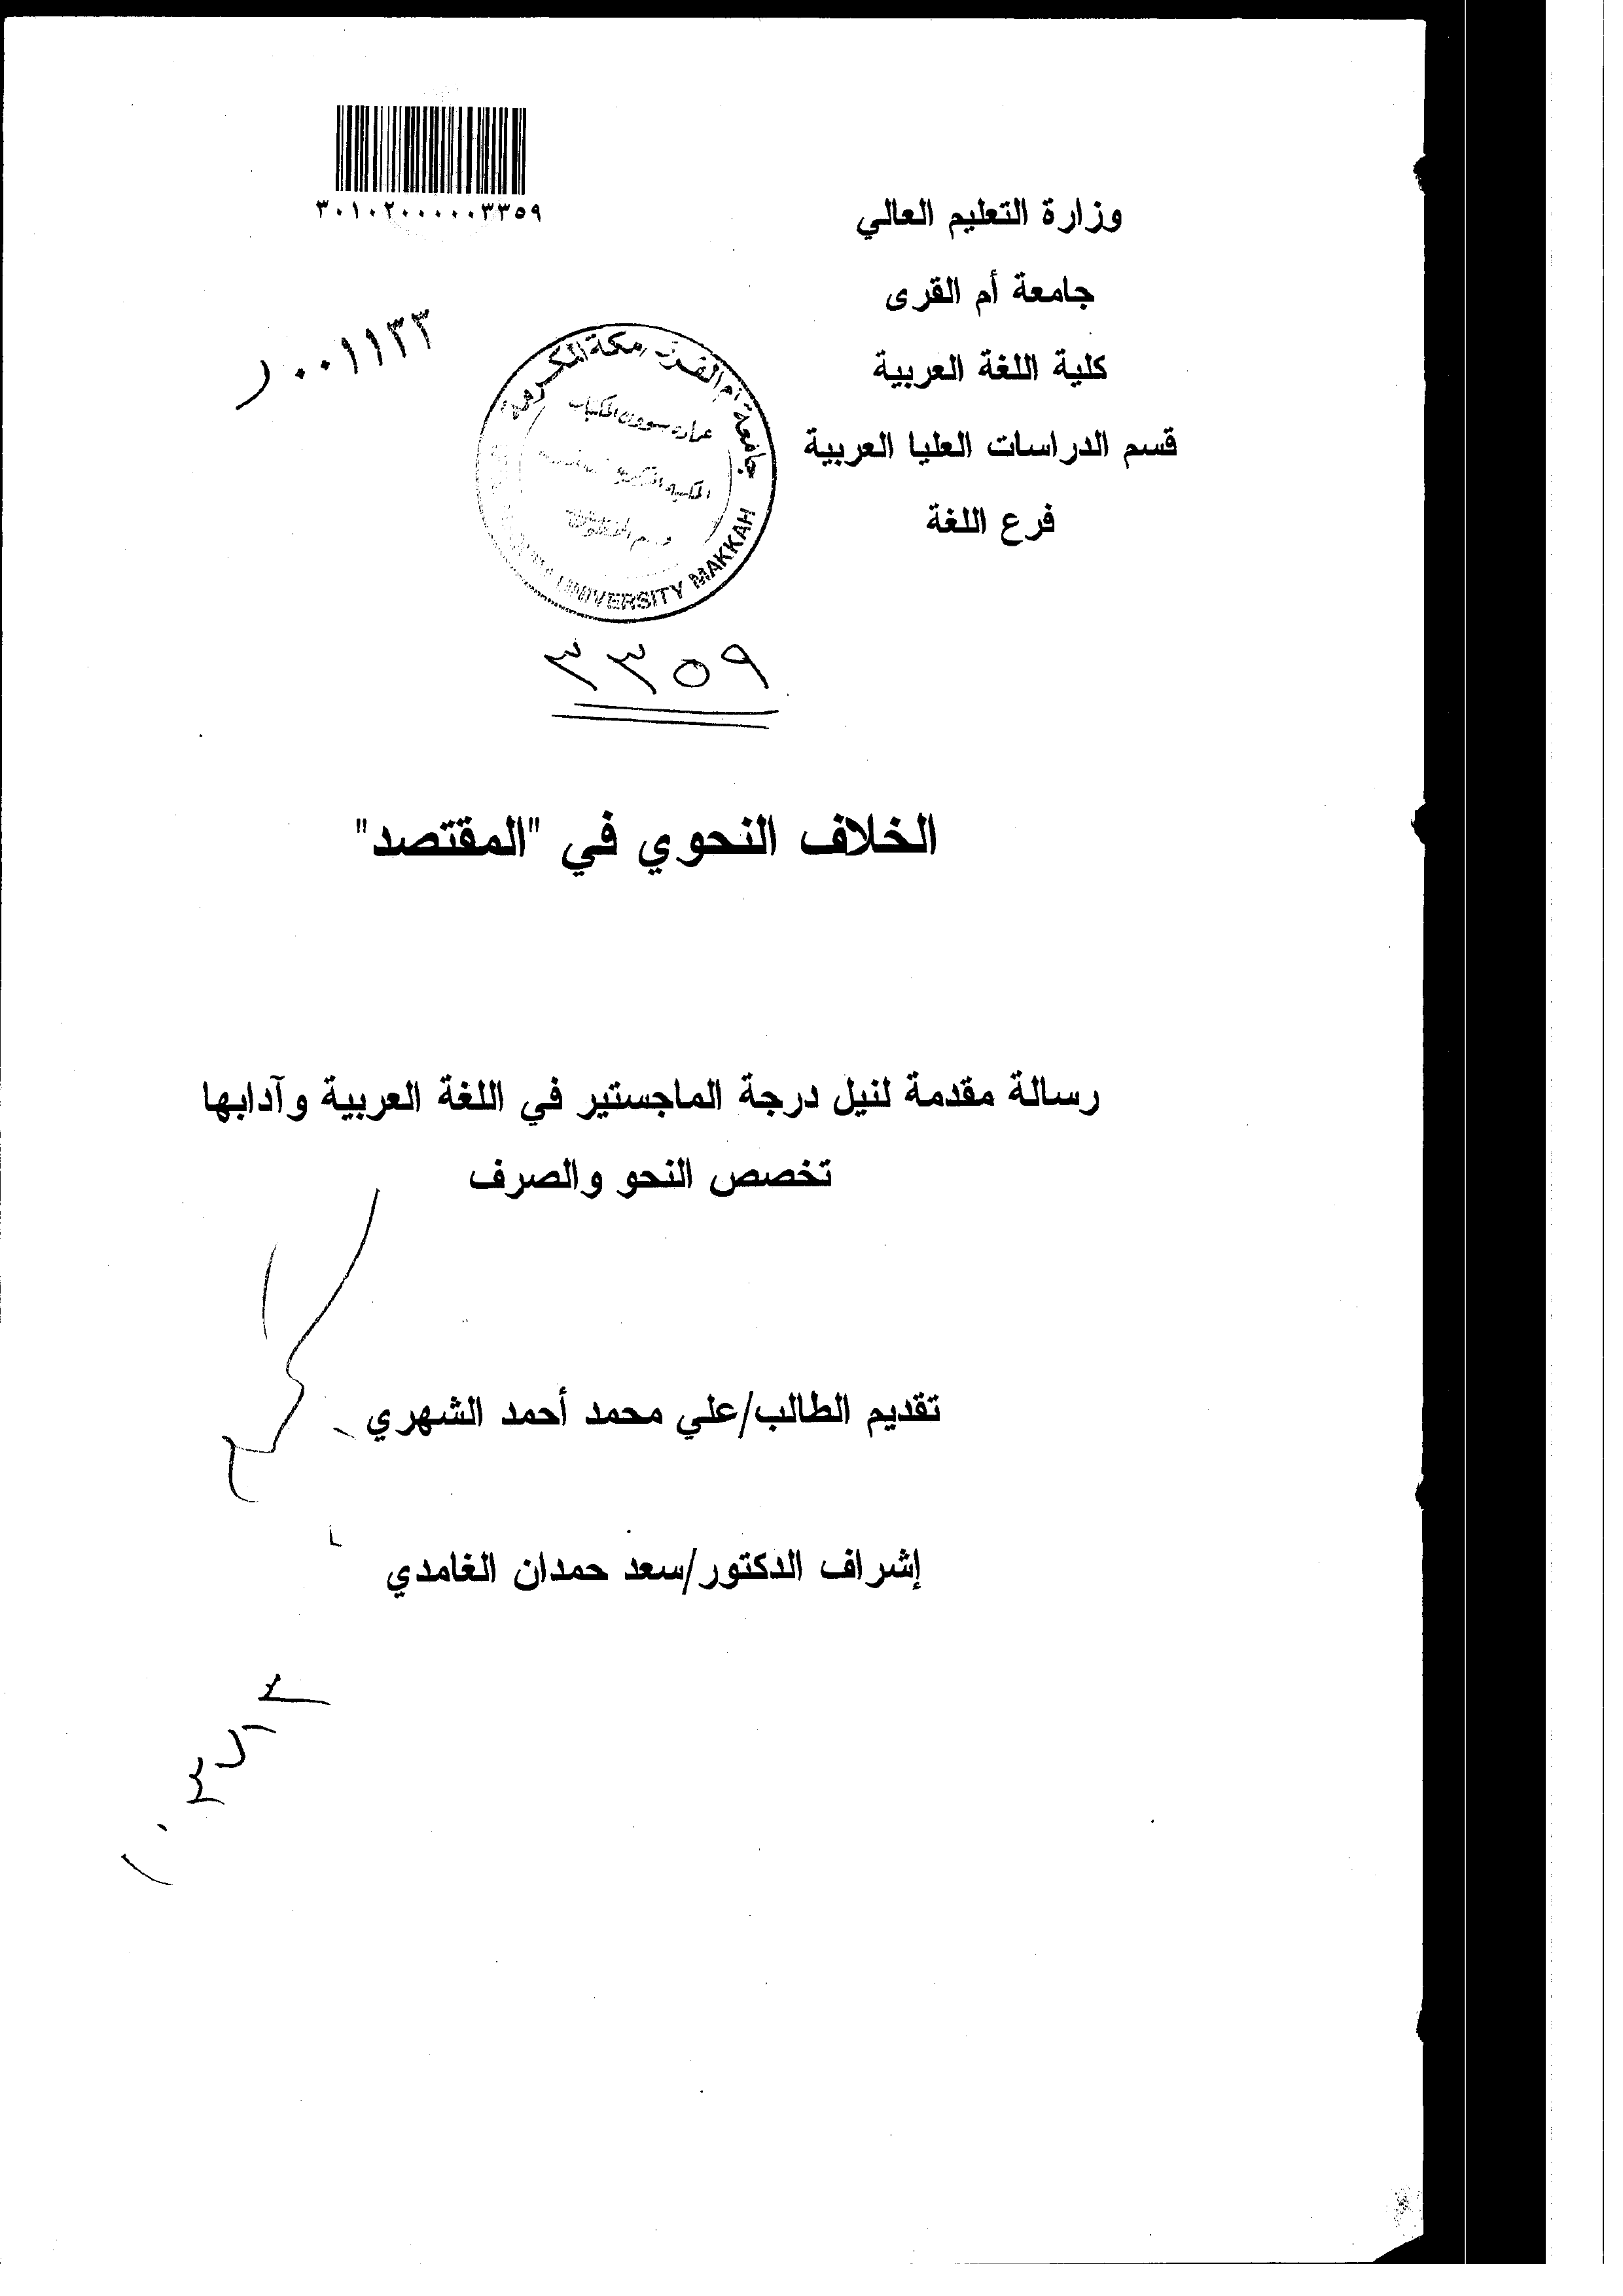 ٣٠١٠٢٠٠٠٠٠٣٣٥٩
وزارة التعليم العالي
جامعة أم القرى
كلية اللغة العربية
قسم الدراسات العليا العربية
فرع اللغة
٠٠١١٣٣
جامعة أم القرى مكة المكرمة
UNIVERSITY MAKKAH
٣٣٥٩
الخلاف النحوي في "المقتصد"
رسالة مقدمة لنيل درجة الماجستير في اللغة العربية وآدابها
تخصص النحو والصرف
تقديم الطالب/علي محمد أحمد الشهري
إشراف الدكتور/سعد حمدان الغامدي